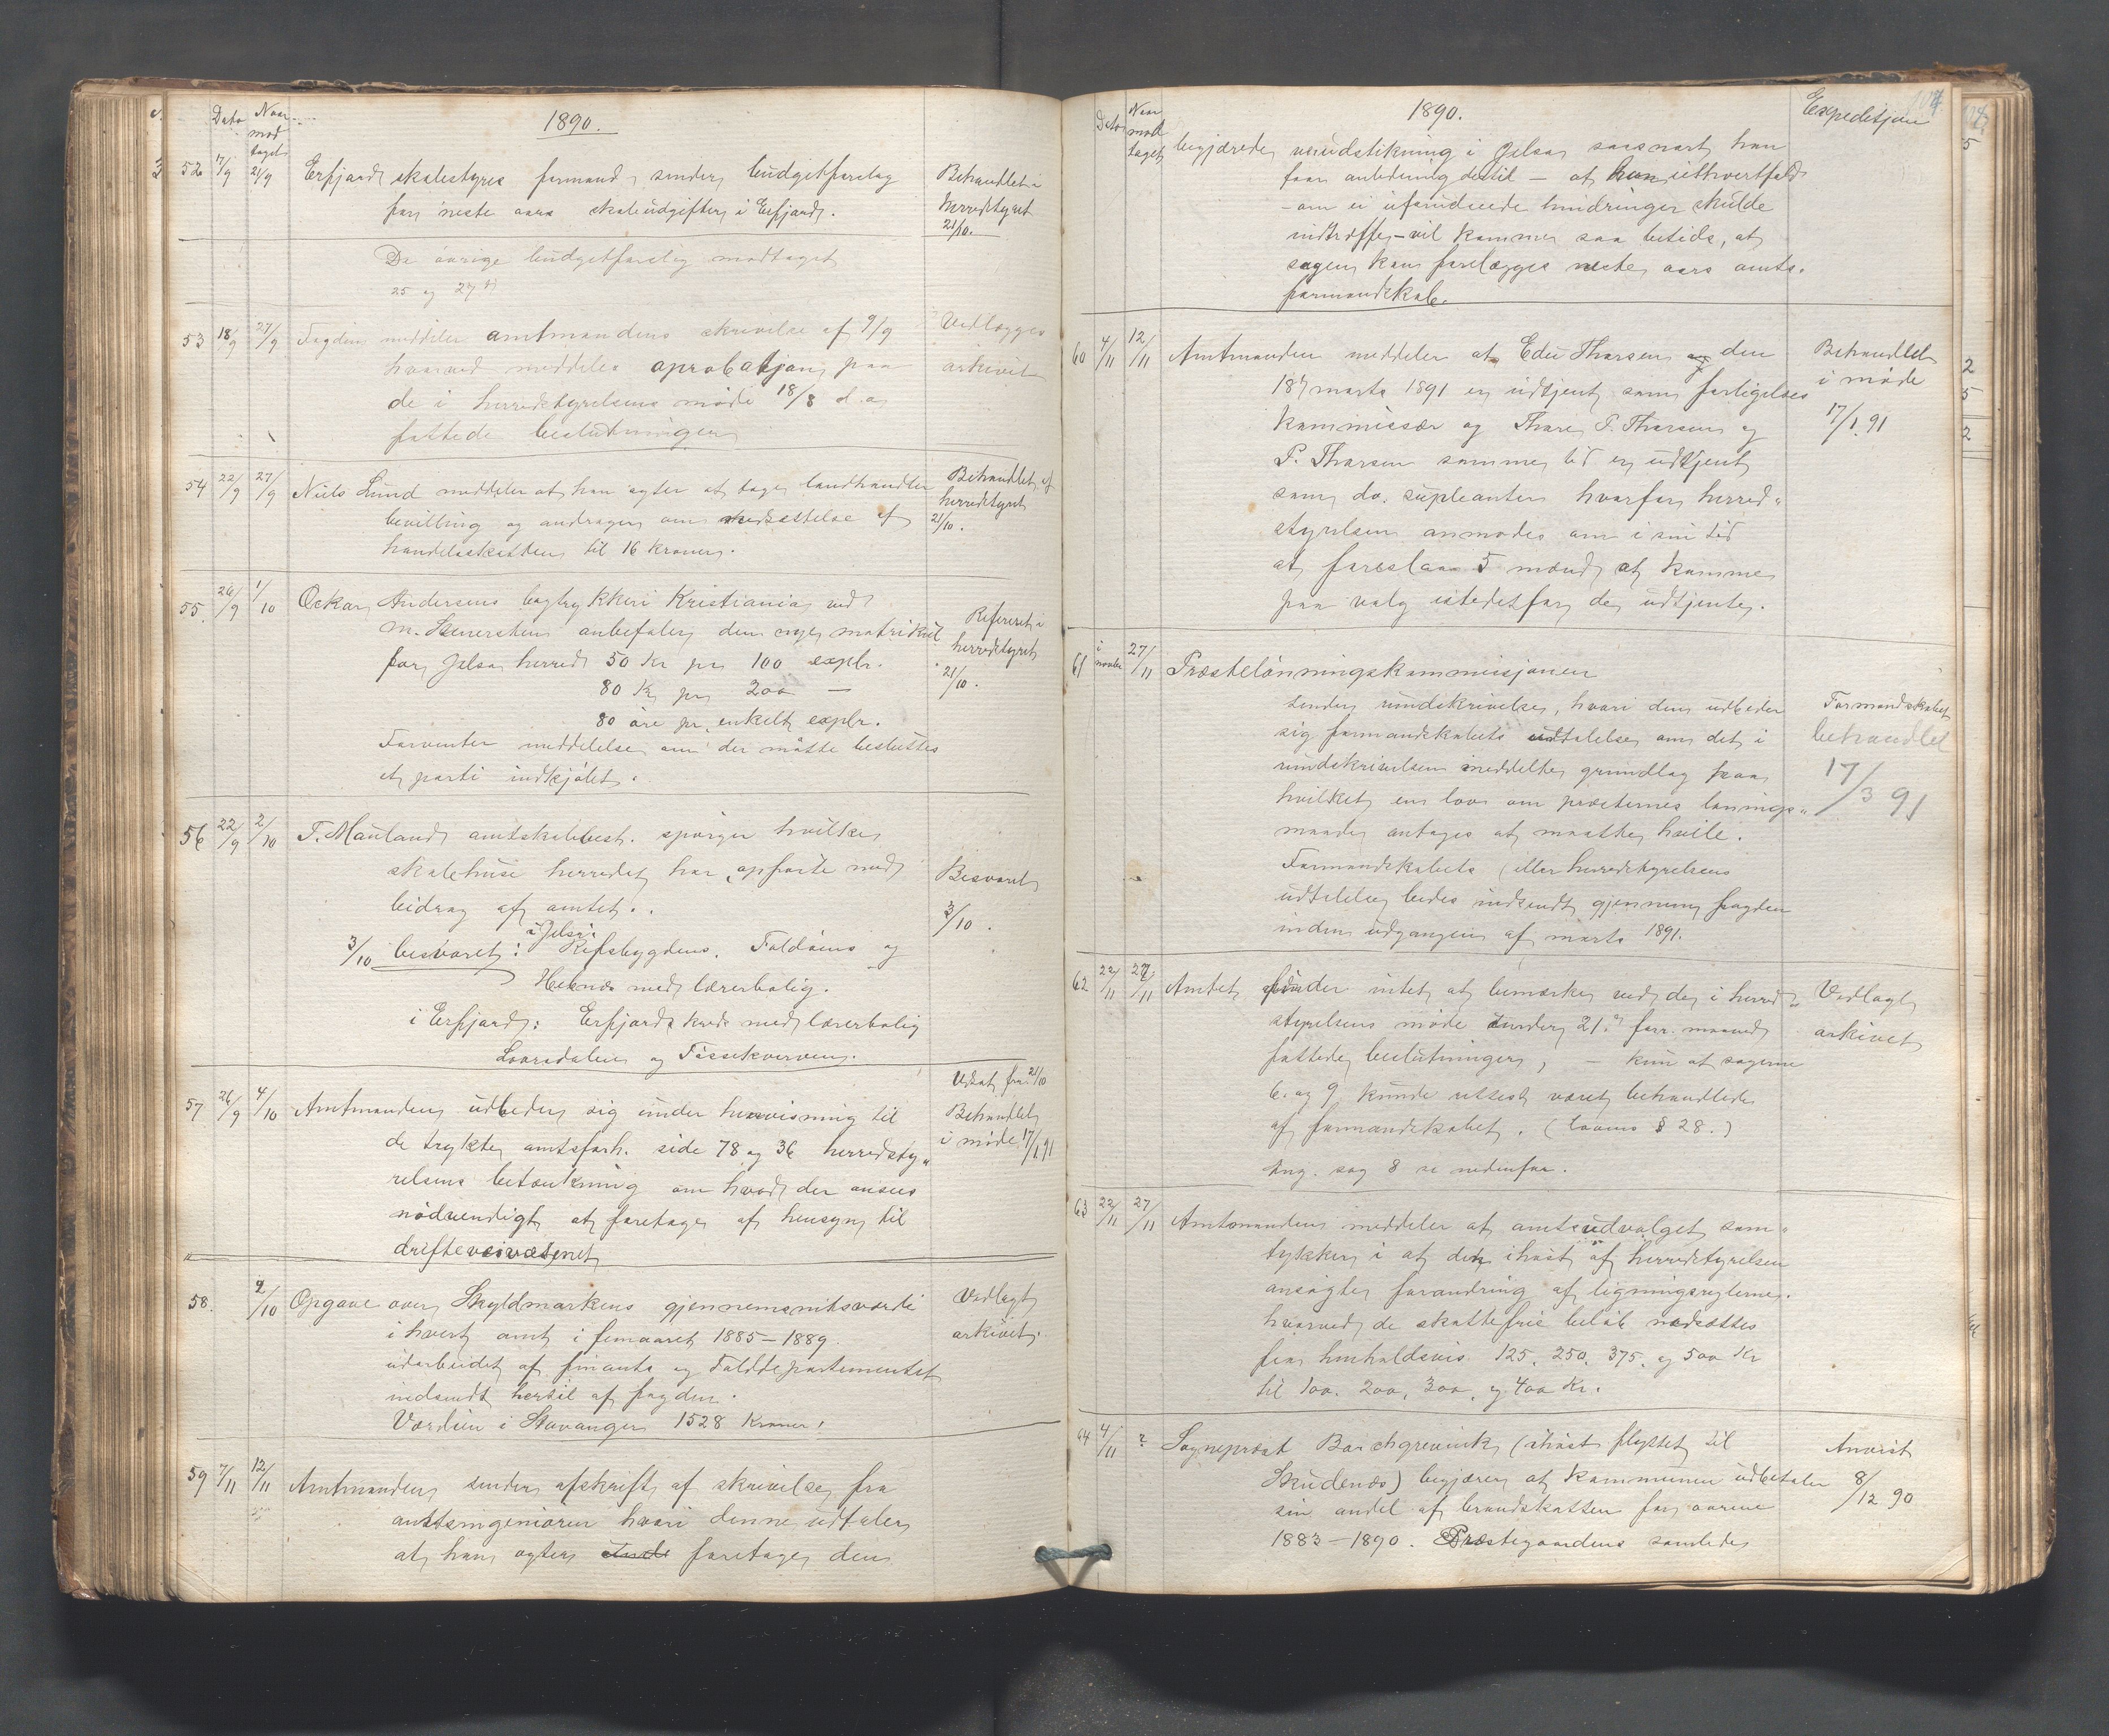 Dato Naar modtaget 1890.
52 17/9 21/9 Erfjords skolestyres formand sender budgetforslag
for neste aars skoleudgifter i Erfjord.
Behandlet i
herredstyret
21/10.
De øvrige budgetforslag modtaget
25 og 27/9
53 18/9 27/9 Fogden meddeler amtmandens skrivelse af 9/9
hvorved meddeles aprobatjon paa
de i herredstyrelsens møde 18/8 d. a.
fattede beslutninger
Vedlægges
arkivet
54 22/9 27/9 Niels Lund meddeler at han agter at tage landhandler
bevilling og andrager om nedsættelse af
handelsskatten til 16 kroner.
Behandlet af
herredstyret
21/10.
55. 26/9 1/10 Oskar Andersens bogtrykkeri Kristiania ved
M. Stenersen anbefaler den nye matrikul
for Jelsa herred 50 Kr pr 100 explr.
80 Kr pr 200 —
80 øre pr. enkelt explr.
Forventer meddelelse om der måtte besluttes
et parti indkjøbt.
Refereret i
herredstyret
21/10.
56 22/9 2/10 T. Mauland amtskolebest. spørger hvilke
skolehuse herredet har opførte med
bidrag af amtet.
Besvaret
3/10.
3/10 besvaret: i Jelsa: Refsbygdens, Foldøens og
Hebnes med lærerbolig.
i Erfjord: Erfjords kreds med lærerbolig
Lovradalen og Tøssekverven.
57 26/9 4/10 Amtmanden udbeder sig under henvisning til
de trykte amtsforh. side 78 og 36 herredsty„
relsens betænkning om hvad der ansees
nødvendigt at foretage af hensyn til
drifteveivæsenet
Udsat fra 21/10
Behandlet
i møde 17/1 91
58. 9/10 Opgave over Skyldmarkens gjennemsnitsværdi
i hvert amt i femaaret 1885–1889.
udarbeidet af finants og Tolddepartementet
indsendt hertil af fogden.
Værdien i Stavanger 1528 Kroner.
Vedlagt
arkivet.
59 7/11 12/11 Amtmanden sender afskrift af skrivelse fra
amtsingeniøren hvori denne udtaler
at han agter at foretage den
Dato Naar modtaget 1890. Expeditjon
begjærede veiudstikning i Jelsa saasnart han
faar anledning dertil — at han ialhvertfald
— om ei uforudseede hindringer skulde
indtræffe — vil komme saa betids, at
sagen kan forelægges neste aars amts„
formandskab.
60 4/11 12/11 Amtmanden meddeler at Edu Thorsen den
18/ marts 1891 er udtjent som forligelses
kommissær og Thore P. Thorsen og
P. Thorsen samme tid er udtjent
som do. supleanter hvorfor herred„
styrelsen anmodes om i sin tid
at foreslaa 5 mænd at komme
paa valg istedetfor de udtjente.
Behandlet
i møde
17/1. 91
61 i novbr 27/11 Præstelønningskommissjonen
sender rundskrivelse, hvori den udbeder
sig formandskabets udtalelse om det i
rundskrivelsen meddelte grundlag paa
hvilket en lov om præsternes lønnings„
maade antages at maatte hvile.
Formandskabets (eller herredstyrelsens
udtalelse bedes indsendt gjennem fogden
inden udgangen af marts 1891.
Formandskabet
behandlet
17/3 91
62 22/11 27/11 Amtet finder intet at bemærke ved de i herred„
styrelsens møde under 21. forr. maaned
fattede beslutninger, — kun at sagerne
6. og 9. kunde rettest været behandlede
af formandskabet. (lovens § 28.)
Ang. sag 8 se nedenfor.
Vedlagt
arkivet
63 22/11 27/11 Amtmanden meddeler at amtsudvalget sam„
tykker i at den ihøst af herredstyrelsen
ansøgte forandring af ligningsreglerne.
hvorved de skattefrie beløb nedsættes
fra henholdsvis 125, 250, 375. og 500 Kr
til 100. 200, 300, og 400 Kr.
64 4/11 ? Sogneprest Borchgrevink (ihøst flyttet til
Skudenæs) begjærer at kommunen udbetaler
sin andel af brandskatten for aarene
1883–1890. Præstegaardens samlede
Anvist
8/12 90